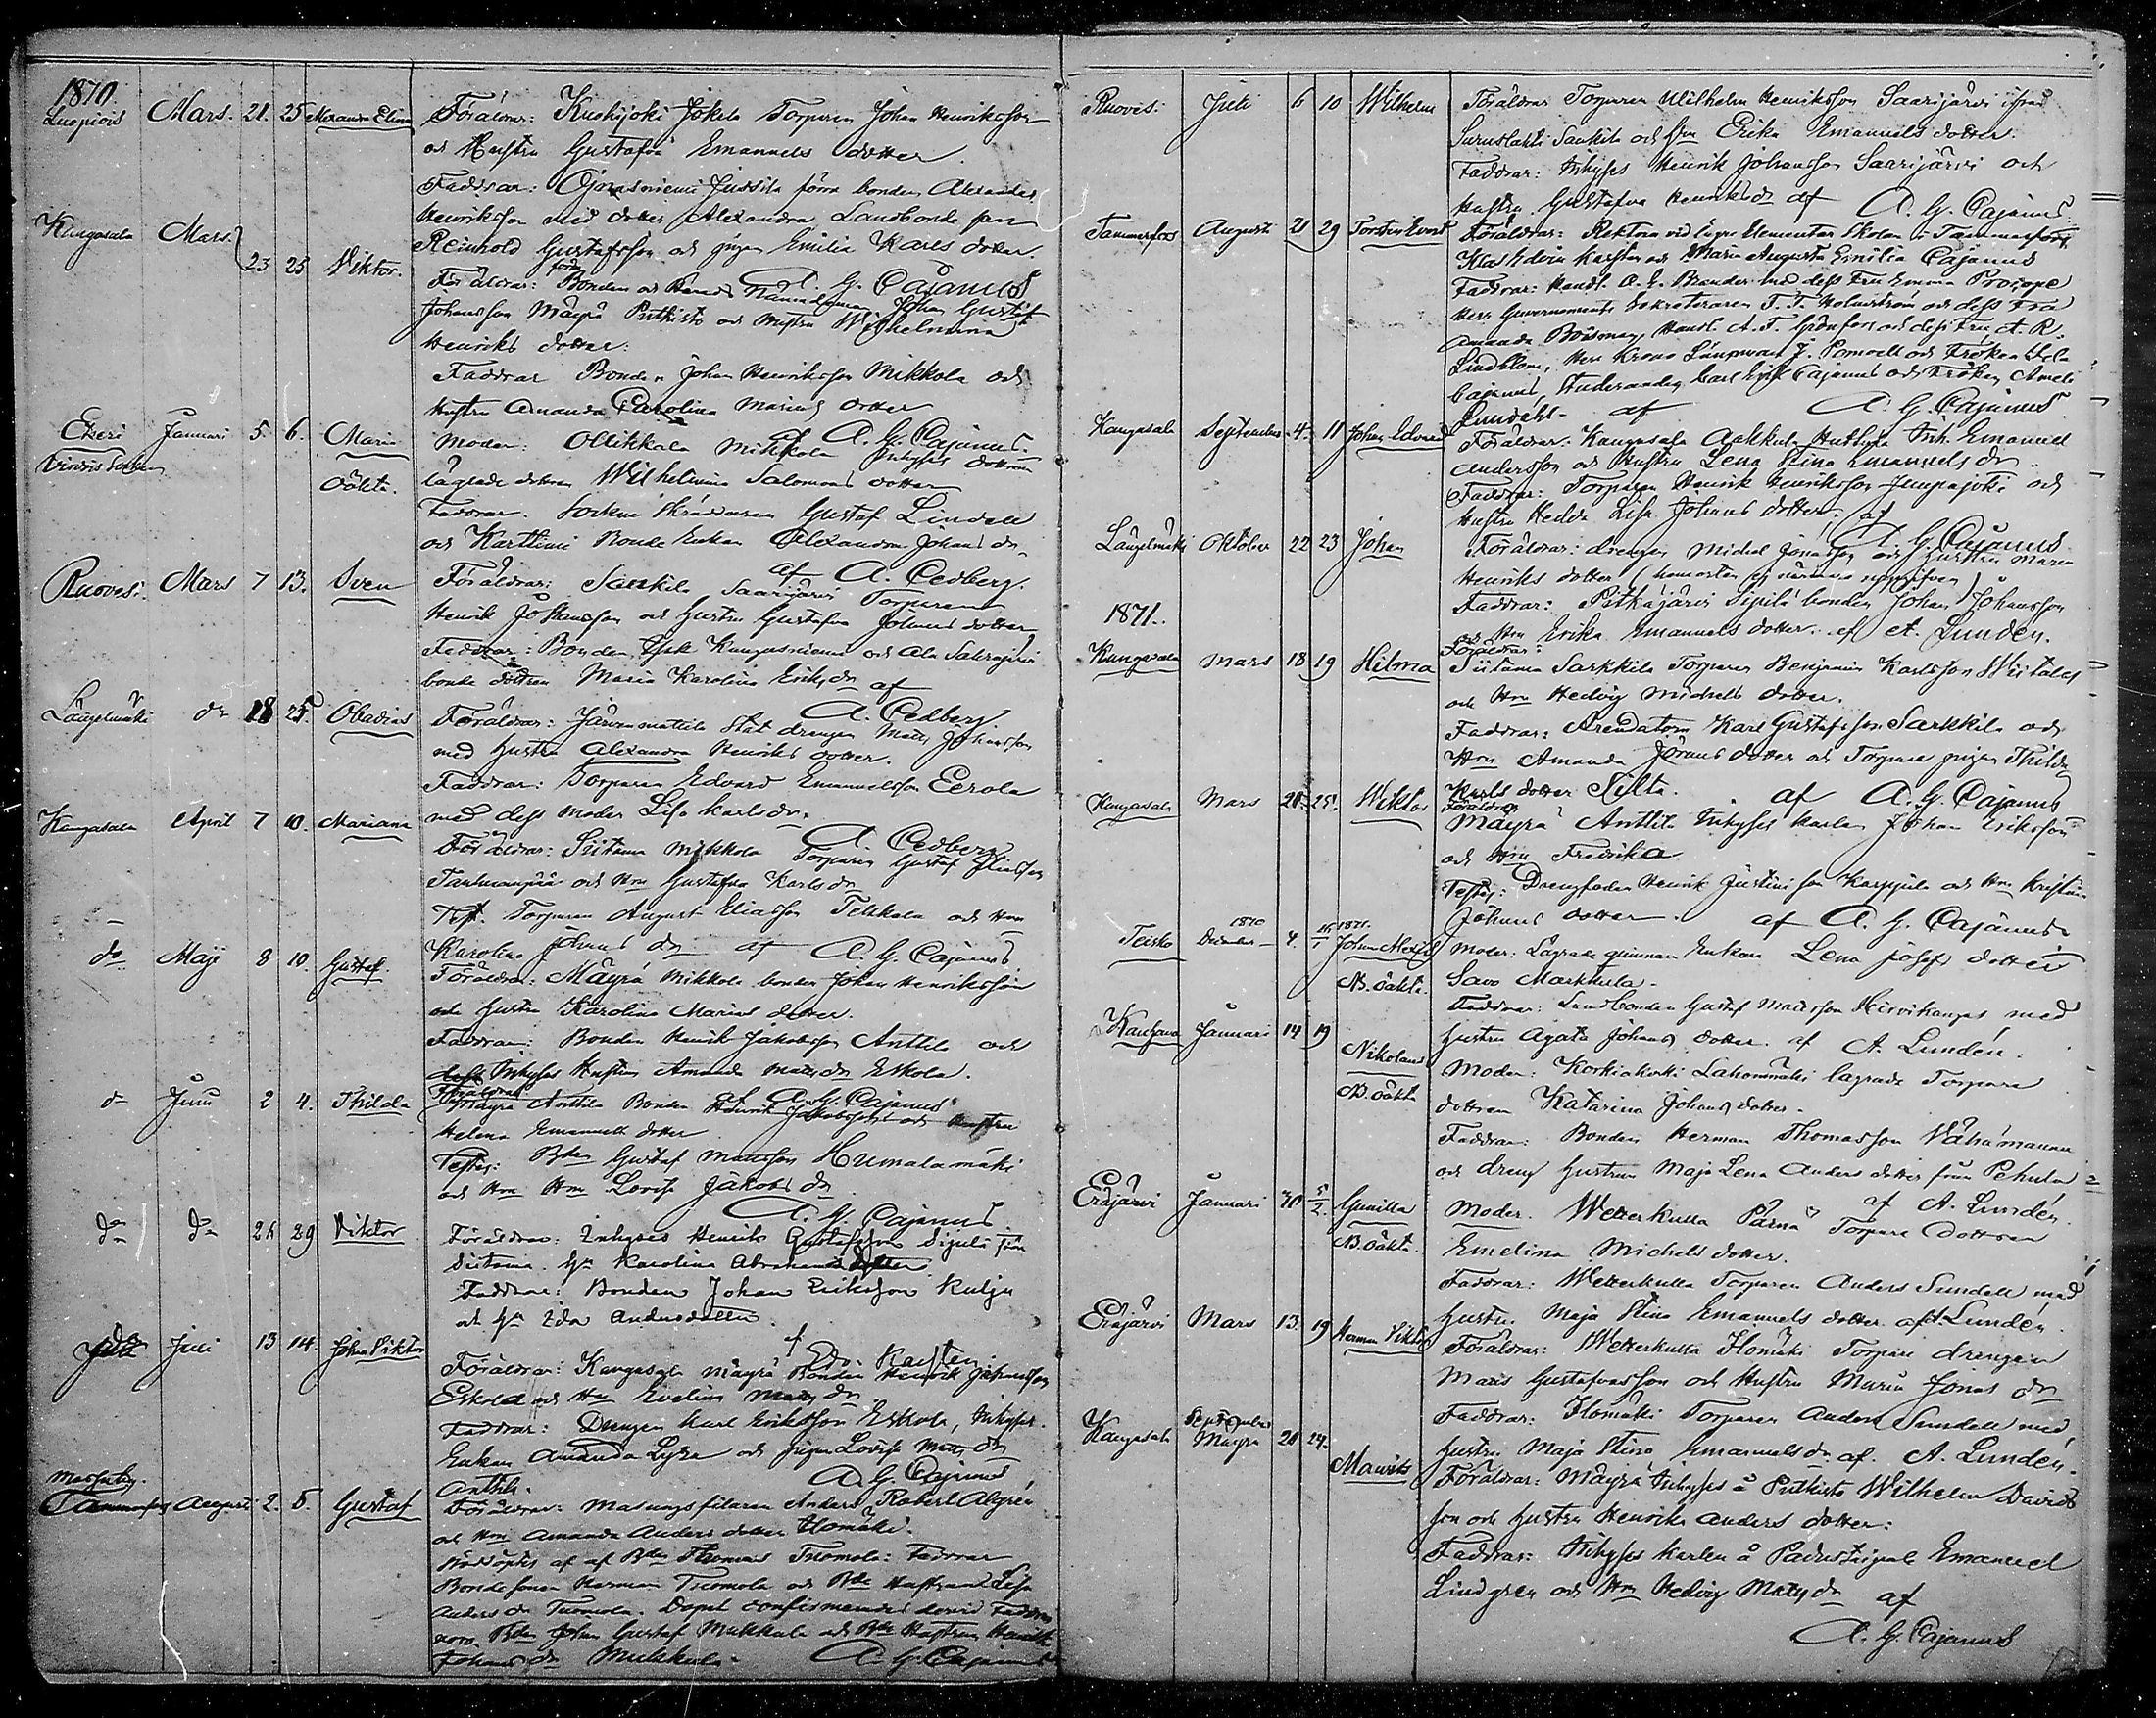 1870.
Luopiois Mars. 21. 25 Alexandra Elina Föräldrar: Kuohijoki Jokela Torparen Johan Henriksson
och Hustru Gustafva Emanuels dotter.
Faddrar: Jussila förra bonden Alexander
Henriksson med dotter Alexandra Landbonde son
Reinhold Gustafsson och pigan Emilia Karls dotter.
A. G. Cajanus
Kangasala Mars. 23 25 Viktor. Föräldrar: Bonden och Nämndeman Johan Gustaf
Johansson Mäyrä Putkisto och Hustru Wilhelmina
Henriks dotter.
Faddrar Bonden Johan Henriksson Mikkola och
Hustru Amanda Carolina Marias dotter
A. G. Cajanus.
Etseri Januari 5. 6. Maria Moder: Ollikkala Mikkola Inhyses dottren
Virdois Socken Oäkta. lägrade dottren Wilhelmina Salomons dotter
Faddrar. Socken Skräddaren Gustaf Lindell
och Karttimi Bonde Enkan Alexandra Johans dr
af A. Cedberg.
Ruovesi. Mars 7 13. Sven Föräldrar: Sankila Saarijärvi Torparen
Henrik Johansson och Hustru Gustafva Johans dotter
Faddrar: Bonden och Ala
bonde dottren Maria Karolina Eriks dr af
A. Cedberg.
Längelmäki dr 18 25 Obadias Föräldrar: Järvenmattila Stat drengen Matts Johansson
med Hustru Alexandra Henriks dotter.
Faddrar: Torparen Edvard Emanuelsson Eerola
med dess moder Lisa Karlsdr.
A. Cedberg
Kangasala April 7 10. Mariana Föräldrar: Siitama Mikkola Torparen Gustaf
och Hru Gustafva Karls dr
Test. Torparen August Eliasson Tekkala och Hru
Karolina Johans dr af A. G. Cajanus
do Maji 8 10. Gustaf. Föräldrar: Mäyrä Mikkola bonden Johan Henriksson
och Hustru Karolina Marias dotter.
Faddrar: Bonden Henrik Jakobsson Anttila och
Inhyses Hustrun Amanda Matts dr Eskola.
af A. G. Cajanus.
dr Juni 2 4. Thilda Föräldrar
Mäyrä Anttila Bonden Henrik Jakobsson och Hustru
Helena Emanuels dotter
Testes: Bden Gustaf Mattsson Humalamäki
och Hru Lovisa Jakobs dr
A. G. Cajanus
dr dr 26 29 Viktor Föräldrar: Inhyses Henrik Gustafsson Sipilä från
Siitama. Hu Karolina Abrahams dotter
Faddrar: Bonden Johan Eriksson Kulju
och Hu Ida Andersdotter.
af Edv. Karsten
do Juli 13 14. Johan Viktor Föräldrar: Kangasala Mäyrä Bonden Henrik Johansson
Eskola och Hru Evelina Matts dr
Faddrar: Drengen Karl Eriksson Eskola, Inhyses
Enkan Amanda Lyra och pigan Lovisa Matts dr
Anttila. A. G. Cajanus
Messuby.
Tammerfors Augusti 2. 5. Gustaf Föräldrar: Masungsfilaren Anders Robert Algrén
och Hru Amanda Anders dotter Ilomäki.
Nöddöptes af Bden Thomas Tuomola: Faddrar
Bondesonen Herman Tuomola och Bde Hustrun Lisa
Anders dr Tuomola. Dopet confirmerades hvarvid Faddrar
voro Bden Johan Gustaf Mukkula och Bde Hustrun
Johans dr Mukkula. A. G. Cajanus
Ruovesi. Juli 6 10 Wilhelm Föräldrar Torparen Wilhelm Henriksson Saarijärvi ifrån
Sankila och Hru Erika Emanuels dotter.
Faddrar: Inhyses Henrik Johansson Saarijärvi och
Hustru Gustafva Henriksdr af A. G. Cajanus.
Tammerfors Augusti 21 29 Torsten Evert Föräldrar: Rektorn vid lägre Elementar Skolan i Tammerfors
Klas Edvin Karsten och Maria Augusta Emilia Cajanus
Faddrar: Handl. A. E. Brander med dess Fru Emma Procope
Herr Guvernements Sekreteraren F. F. Holmström och dess Fru
Amanda Boisman, Handl. A. F. Grönfors och dess Fru A. R.
Lindblom, Herr Krono Länsman J. och Fröken
Cajanus, Studeranden Carl Cajanus och Fröken
Lundahl. af A. G. Cajanus
Kangasala September 4. 11 Johan Edvard Föräldrar: Kangasala Inh. Emanuel
Andersson och Hustru Lena Stina Emanuels dr.
Faddrar: Torparen Henrik Henriksson och
Hustru Hedda Lisa Johans dotter. af
A. G. Cajanus
Längelmäki Oktober 22 23 Johan Föräldrar: drengen Michel Jonasson och Hustrun Maria
Henriks dotter (hemorten ej närmare uppgifven)
Faddrar: Pitkäjärvi Sipilä bonden Johan Johansson
och Hru Erika Emanuels dotter. af A. Lundén.
1871.
Kangasala Mars 18 19 Hilma Föräldrar:
Siitama Sarkkila Torparen Benjamin Karlsson Wiitala
och Hru Hedvig Michels dotter.
Faddrar: Arendatorn Karl Gustafsson Sarkkila och
Hru Amanda Johans dotter och Torpare pigan Thilda
Karls dotter Silta. af A. G. Cajanus
Kangasala Mars 20. 25. Wiktor Föräldrar
Mäyrä Anttila Inhyses karlen Johan Eriksson
och Hru Fredrika
Testes: Drengfaden Henrik Justini son Karppula och Hru Kristina
Johans dotter. af A. G. Cajanus
Teisko 1870 December 4. 16/1 1871. Johan Alexis Moder: Lägrade qvinnan Enkan Lena Josefs dotter
NB. Oäkta. Savo Markkula.
Faddrar: Landbonden Gustaf Mattsson Hirvikangas med
Hustru Agata Johans dotter. af A. Lundén.
Januari 14 19 Nikolaus Moder: Korkiakoski Lahonmäki lägrade Torpare
NB. Oäkta dottren Katarina Johans dotter.
Faddrar: Bonden Herman Thomasson
och dreng Hustrun Maja Lena Anders dotter från Pehula
af A. Lundén.
Eräjärvi Januari 30 5/2. Gunilla Moder. Wetterkulla Pärnä Torpare dottren
NB. Oäkta. Emelina Michels dotter.
Faddrar: Wetterkulla Torparen Anders Sundell med
Hustru Maja Stina Emanuels dotter af A. Lundén.
Eräjärvi Mars 13. 19 Herman Viktor Föräldrar: Wetterkulla Ilomäki Torpare drengen
Matts Gustafvasson och Hustru Maria Jonas dr
Faddrar: Ilomäki Torparen Anders Sundell med
Hustru Maja Stina Emanuelsdr. af. A. Lundén.
Kangasala September Mäyrä 20 24. Maurits Föräldrar: Mäyrä Inhyses å Putkisto Wilhelm Davids
son och Hustru Henrika Anders dotter:
Faddrar: Inhyses karlen å Emanuel
Lindgren och Hru Hedvig Matts dr af
A. G. Cajanus